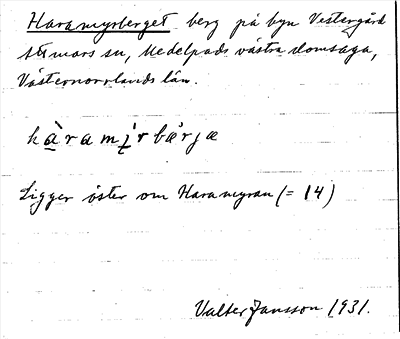 Haramyrberget berg på byn Vestergård
Attmars sn, Medelpads västra domsaga,
Västernorrlands län.
hàramỳrbærjæ
Ligger öster om Haramyran (= 14)
Valter Jansson 1931.